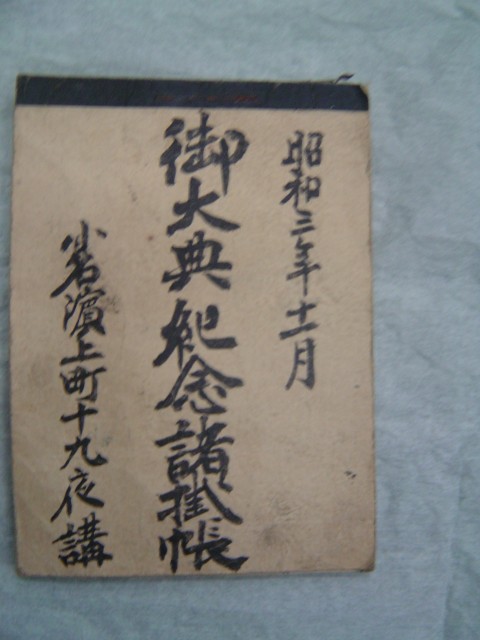 昭和三年十一月
御大典紀念諸掛帳
小名濱上町十九夜講